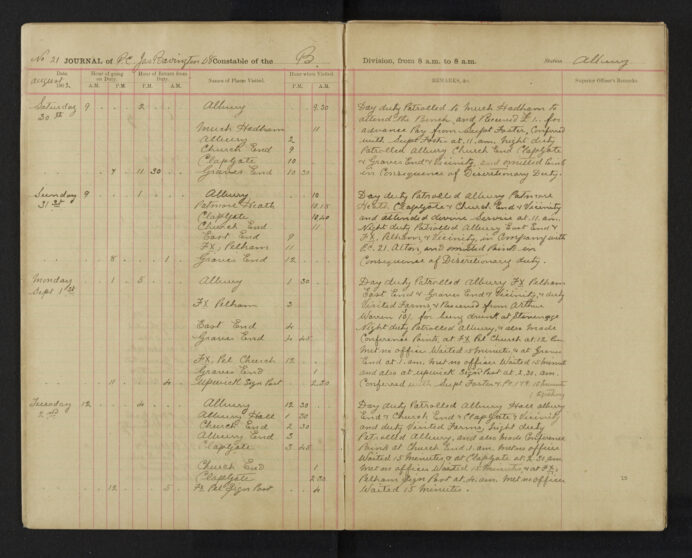 No 21 JOURNAL of P.C. Jas Ravington Constable of the B
Date. Hour of going on Duty. Hour of Return from Duty. Names of Places Visited. Hour when Visited.
August 190 A.M. P.M. A.M. P.M. P.M. A.M.
Saturday 9 . . 2 . Albury . . 9.30
30th Much Hadham 11
Albury 2
Church End 9
Clapgate 10
. . 7 . 11 30 . . Graves End 10 30
Sunday 9 . . 1 . Albury . . 10
31st Patmore Heath . 10.15
Clapgate 10.40
Church End 11
East End 9
Fx, Pelham 11
. . . 8 . . 1 . Graves End 12 . .
Monday . . 1 . 5 . Albury 1 30
Sept 1st
Fx Pelham 3
East End 4
Graves End 4 45
Fx, Pel Church 12 . .
Graves End 1
. . . 11 . . 4 . Upwick Sign Post . . 2.30
Tuesday 12 . . . 4 . . Albury 12 30
2nd Albury Hall 1 30
Church End 2 30
Albury End 3
Clapgate 3 45
Church End 1
Clapgate 2.30
. . 12 . . 5 . Fx Pel Sign Post . . 4
Division, from 8 a.m. to 8 a.m. Station Albury
REMARKS, &c. Superior Officer's Remarks.
Day duty Patrolled to Much Hadham to
attend the Bench, and Received £1. for
advance Pay from Supt Foster, Conferred
with Supt Foster at 11.am. Night duty
Patrolled Albury Church End Clapgate
& Graves End & Vicinity and omitted Point
in Consequence of Discretionary Duty.
Day duty Patrolled Albury Patmore
Heath, Clapgate & Church End & Vicinity
and attended divine Service at 11.am.
Night duty Patrolled Albury East End &
Fx, Pelham, & Vicinity, in Company with
P.C. 21 Alton, and omitted Point in
Consequence of Discretionary duty.
Day duty Patrolled Albury Fx Pelham
East End & Graves End & Vicinity, & duty
Visited Farms, & Received from Arthur
Warren 10/ for being drunk at Stevenage
Night duty Patrolled Albury, & also made
Conference Points, at Fx Pel Church at 12 Pm
Met no officer Waited 15 minutes, & at Graves
End at 1 am. Met no officer Waited 15 minutes
and also at Upwick Sign Post at 2.30 am.
Conferred with Supt Foster & Pc 149. 15 minutes
Day duty Patrolled Albury Hall Albury
End & Church End & Clap Gate & Vicinity
and duty Visited Farms, Night duty
Patrolled Albury, and also made Conference
Point at Church End 1 am. Met no officer
Waited 15 minutes, & at Clapgate at 2.30 am
Met no officer Waited 15 minutes, & at Fx.
Pelham Sign Post at 4. am. Met no officer
Waited 15 minutes.